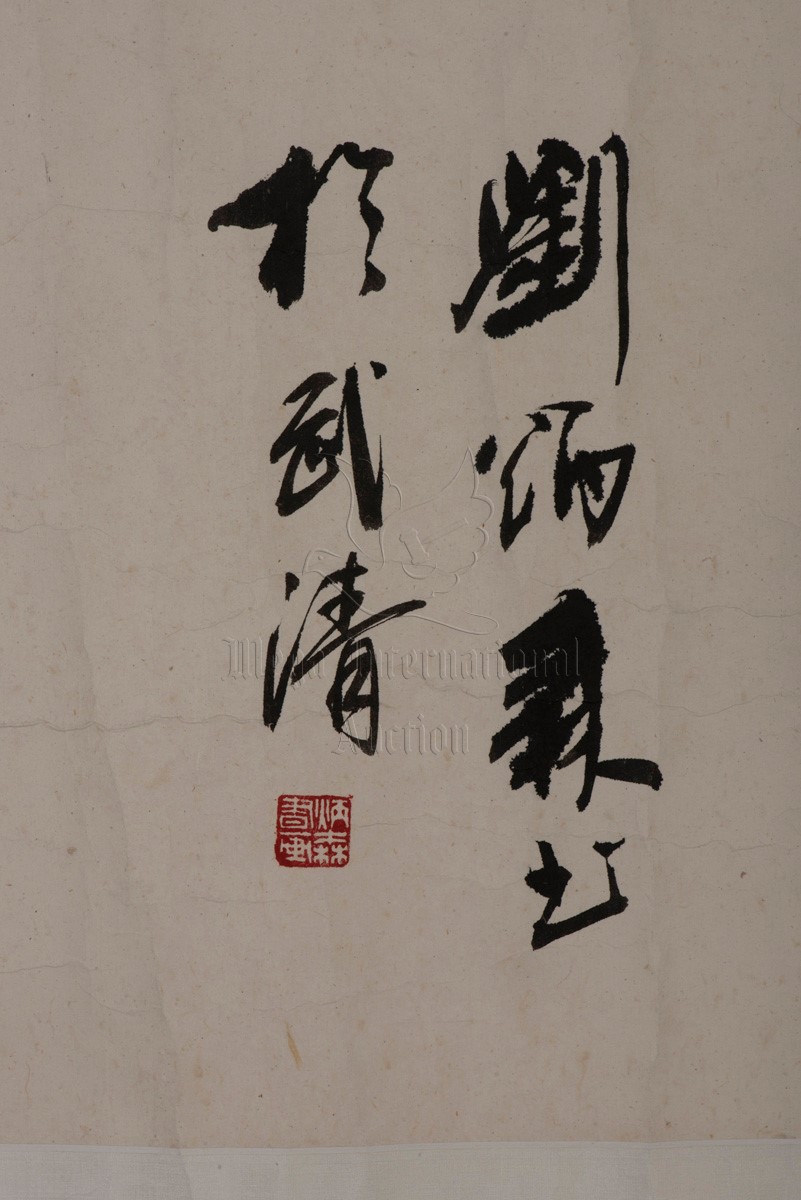 劉炳森書
於武清
炳森書畫
Mega International
Auction